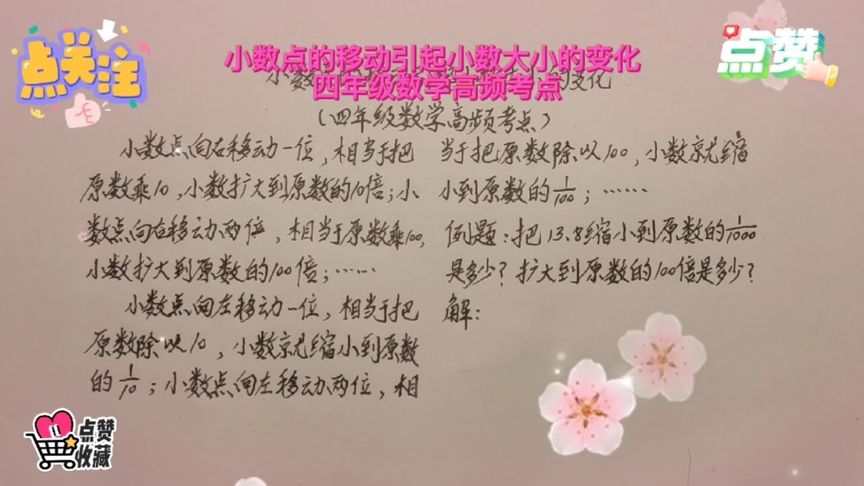 点关注
点赞
小数点的移动引起小数大小的变化
四年级数学高频考点
(四年级数学高频考点)
小数点向右移动一位,相当于把
原数乘10,小数扩大到原数的10倍;小
数点向右移动两位,相当于原数乘100,
小数扩大到原数的100倍;……
小数点向左移动一位,相当于把
原数除以10,小数就缩小到原数
的1/10;小数点向左移动两位,相
当于把原数除以100,小数就缩
小到原数的1/100;……
例题:把13.8缩小到原数的1/1000
是多少?扩大到原数的100倍是多少?
解:
点赞
收藏